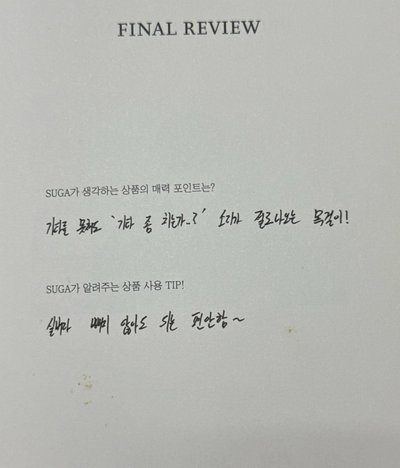 FINAL REVIEW
SUGA가 생각하는 상품의 매력 포인트는?
기타를 못쳐도 '기타 좀 치는가..?' 소리가 절로나오는 목걸이!
SUGA가 알려주는 상품 사용 TIP!
빼지 않아도 되는 편안함~